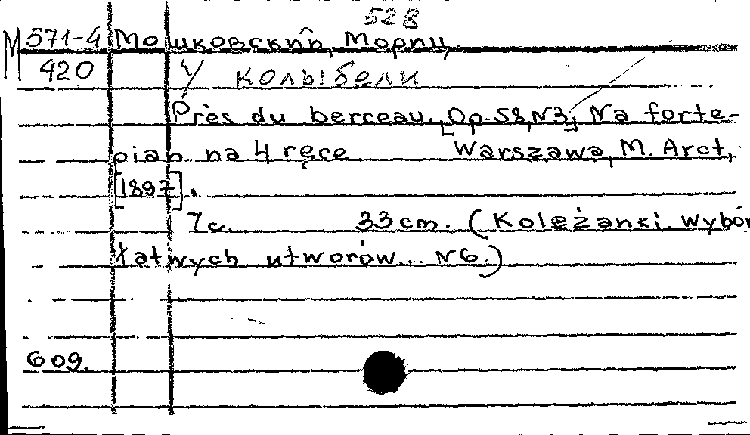 528
М 571-4 Мошковский, Мориц
420 У колыбели
Près du berceau. [Op. 58, N3]. Na forte-
pian na 4 ręce Warszawa, M. Arct,
[1897].
7 с. 33 cm. (Koleżanki. Wybór
łatwych utworów... N6.)
609.